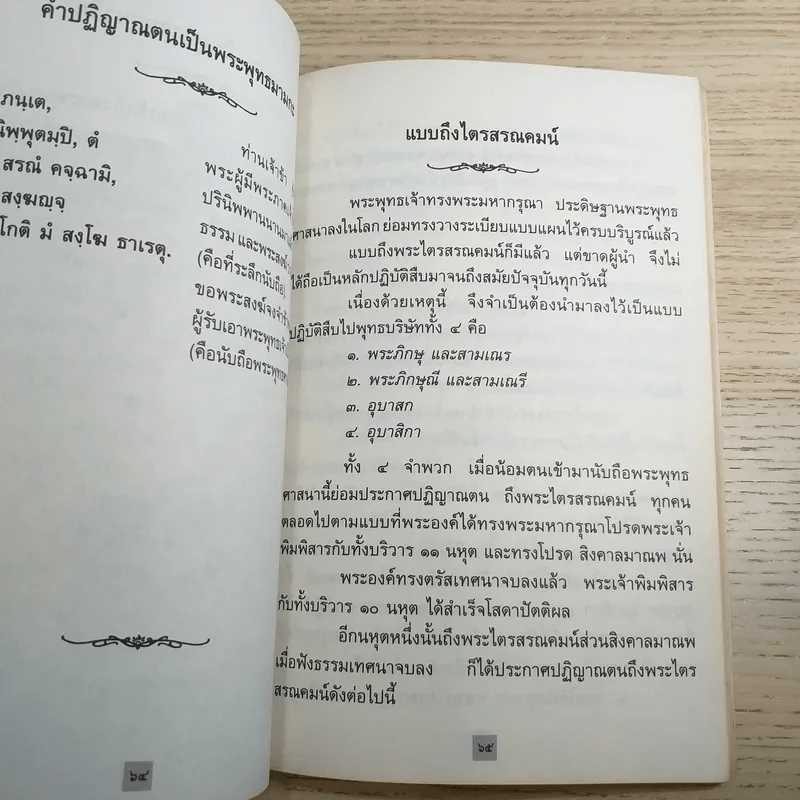 คำปฏิญาณตนเป็นพระพุทธมามกะ
ภนฺเต,
นิพฺพุตมฺปิ, ตํ
สรณํ คจฺฉามิ,
สงฺฆญฺจ
โกติ มํ สงฺโฆ ธาเรตุ.
ท่านเจ้าข้า
พระผู้มีพระภาคเจ้า
ปรินิพพานนานมา
ธรรม และพระสงฆ์
(คือที่ระลึกนับถือ)
ขอพระสงฆ์จงจำข้า
ผู้รับเอาพระพุทธเจ้า
(คือนับถือพระพุทธ
๖๔
แบบถึงไตรสรณคมน์
พระพุทธเจ้าทรงพระมหากรุณา ประดิษฐานพระพุทธ
ศาสนาลงในโลก ย่อมทรงวางระเบียบแบบแผนไว้ครบบริบูรณ์แล้ว
แบบถึงพระไตรสรณคมน์ก็มีแล้ว แต่ขาดผู้นำ จึงไม่
ได้ถือเป็นหลักปฏิบัติสืบมาจนถึงสมัยปัจจุบันทุกวันนี้
เนื่องด้วยเหตุนี้ จึงจำเป็นต้องนำมาลงไว้เป็นแบบ
ปฏิบัติสืบไปพุทธบริษัททั้ง ๔ คือ
๑. พระภิกษุ และสามเณร
๒. พระภิกษุณี และสามเณรี
๓. อุบาสก
๔. อุบาสิกา
ทั้ง ๔ จำพวก เมื่อน้อมตนเข้ามานับถือพระพุทธ
ศาสนานี้ย่อมประกาศปฏิญาณตน ถึงพระไตรสรณคมน์ ทุกคน
ตลอดไปตามแบบที่พระองค์ได้ทรงพระมหากรุณาโปรดพระเจ้า
พิมพิสารกับทั้งบริวาร ๑๑ นหุต และทรงโปรด สิงคาลมาณพ นั่น
พระองค์ทรงตรัสเทศนาจบลงแล้ว พระเจ้าพิมพิสาร
กับทั้งบริวาร ๑๐ นหุต ได้สำเร็จโสดาปัตติผล
อีกนหุตหนึ่งนั้นถึงพระไตรสรณคมน์ส่วนสิงคาลมาณพ
เมื่อฟังธรรมเทศนาจบลง ก็ได้ประกาศปฏิญาณตนถึงพระไตร
สรณคมน์ดังต่อไปนี้
๖๕